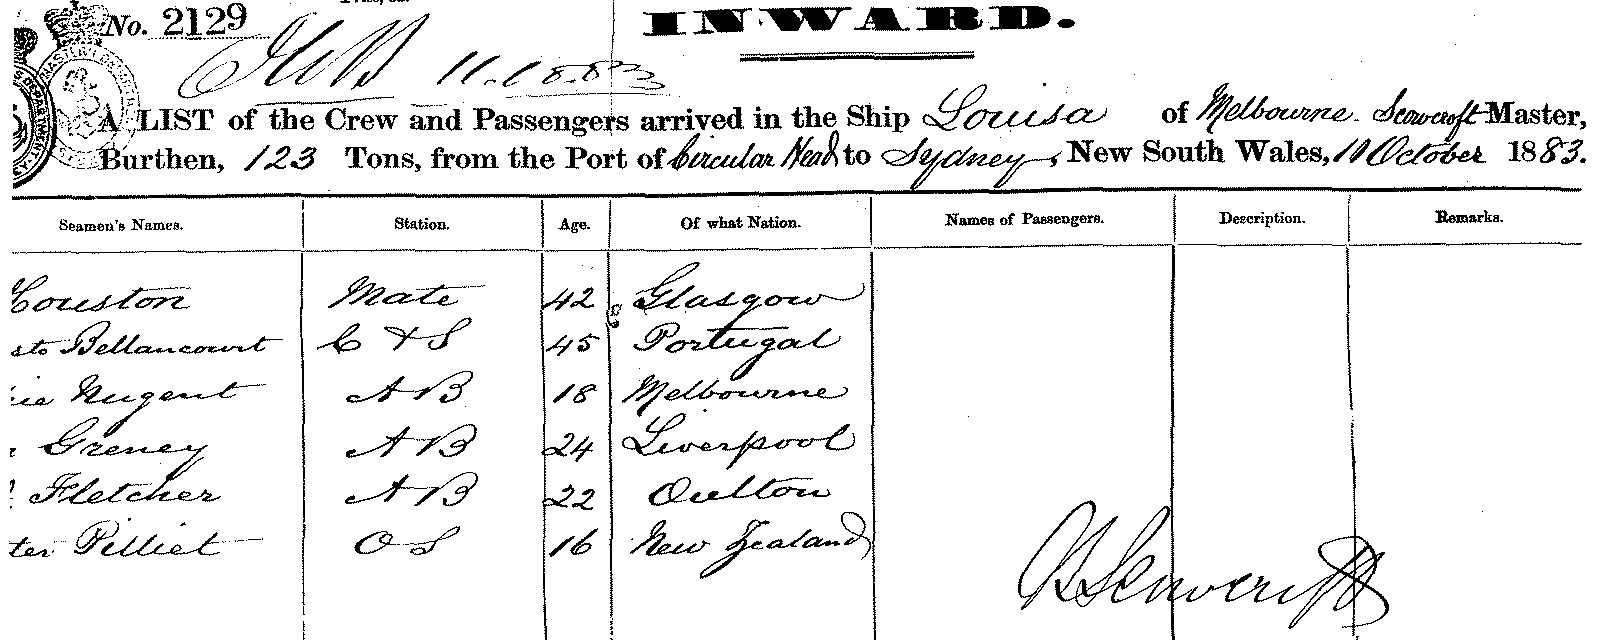 No. 2129
INWARD.
11.10.83
A LIST of the Crew and Passengers arrived in the Ship Louisa of Melbourne. Scowcroft Master,
Burthen, 123 Tons, from the Port of Circular Head to Sydney, New South Wales, 10 October 1883.
Seamen's Names. Station. Age. Of what Nation. Names of Passengers. Description. Remarks.
Houston Mate 42 Glasgow
sto Bellancourt C & S 45 Portugal
Nugent AB 18 Melbourne
Greney AB 24 Liverpool
Fletcher AB 22 Oulton
ter Pilliet OS 16 New Zealand
B Scowcroft